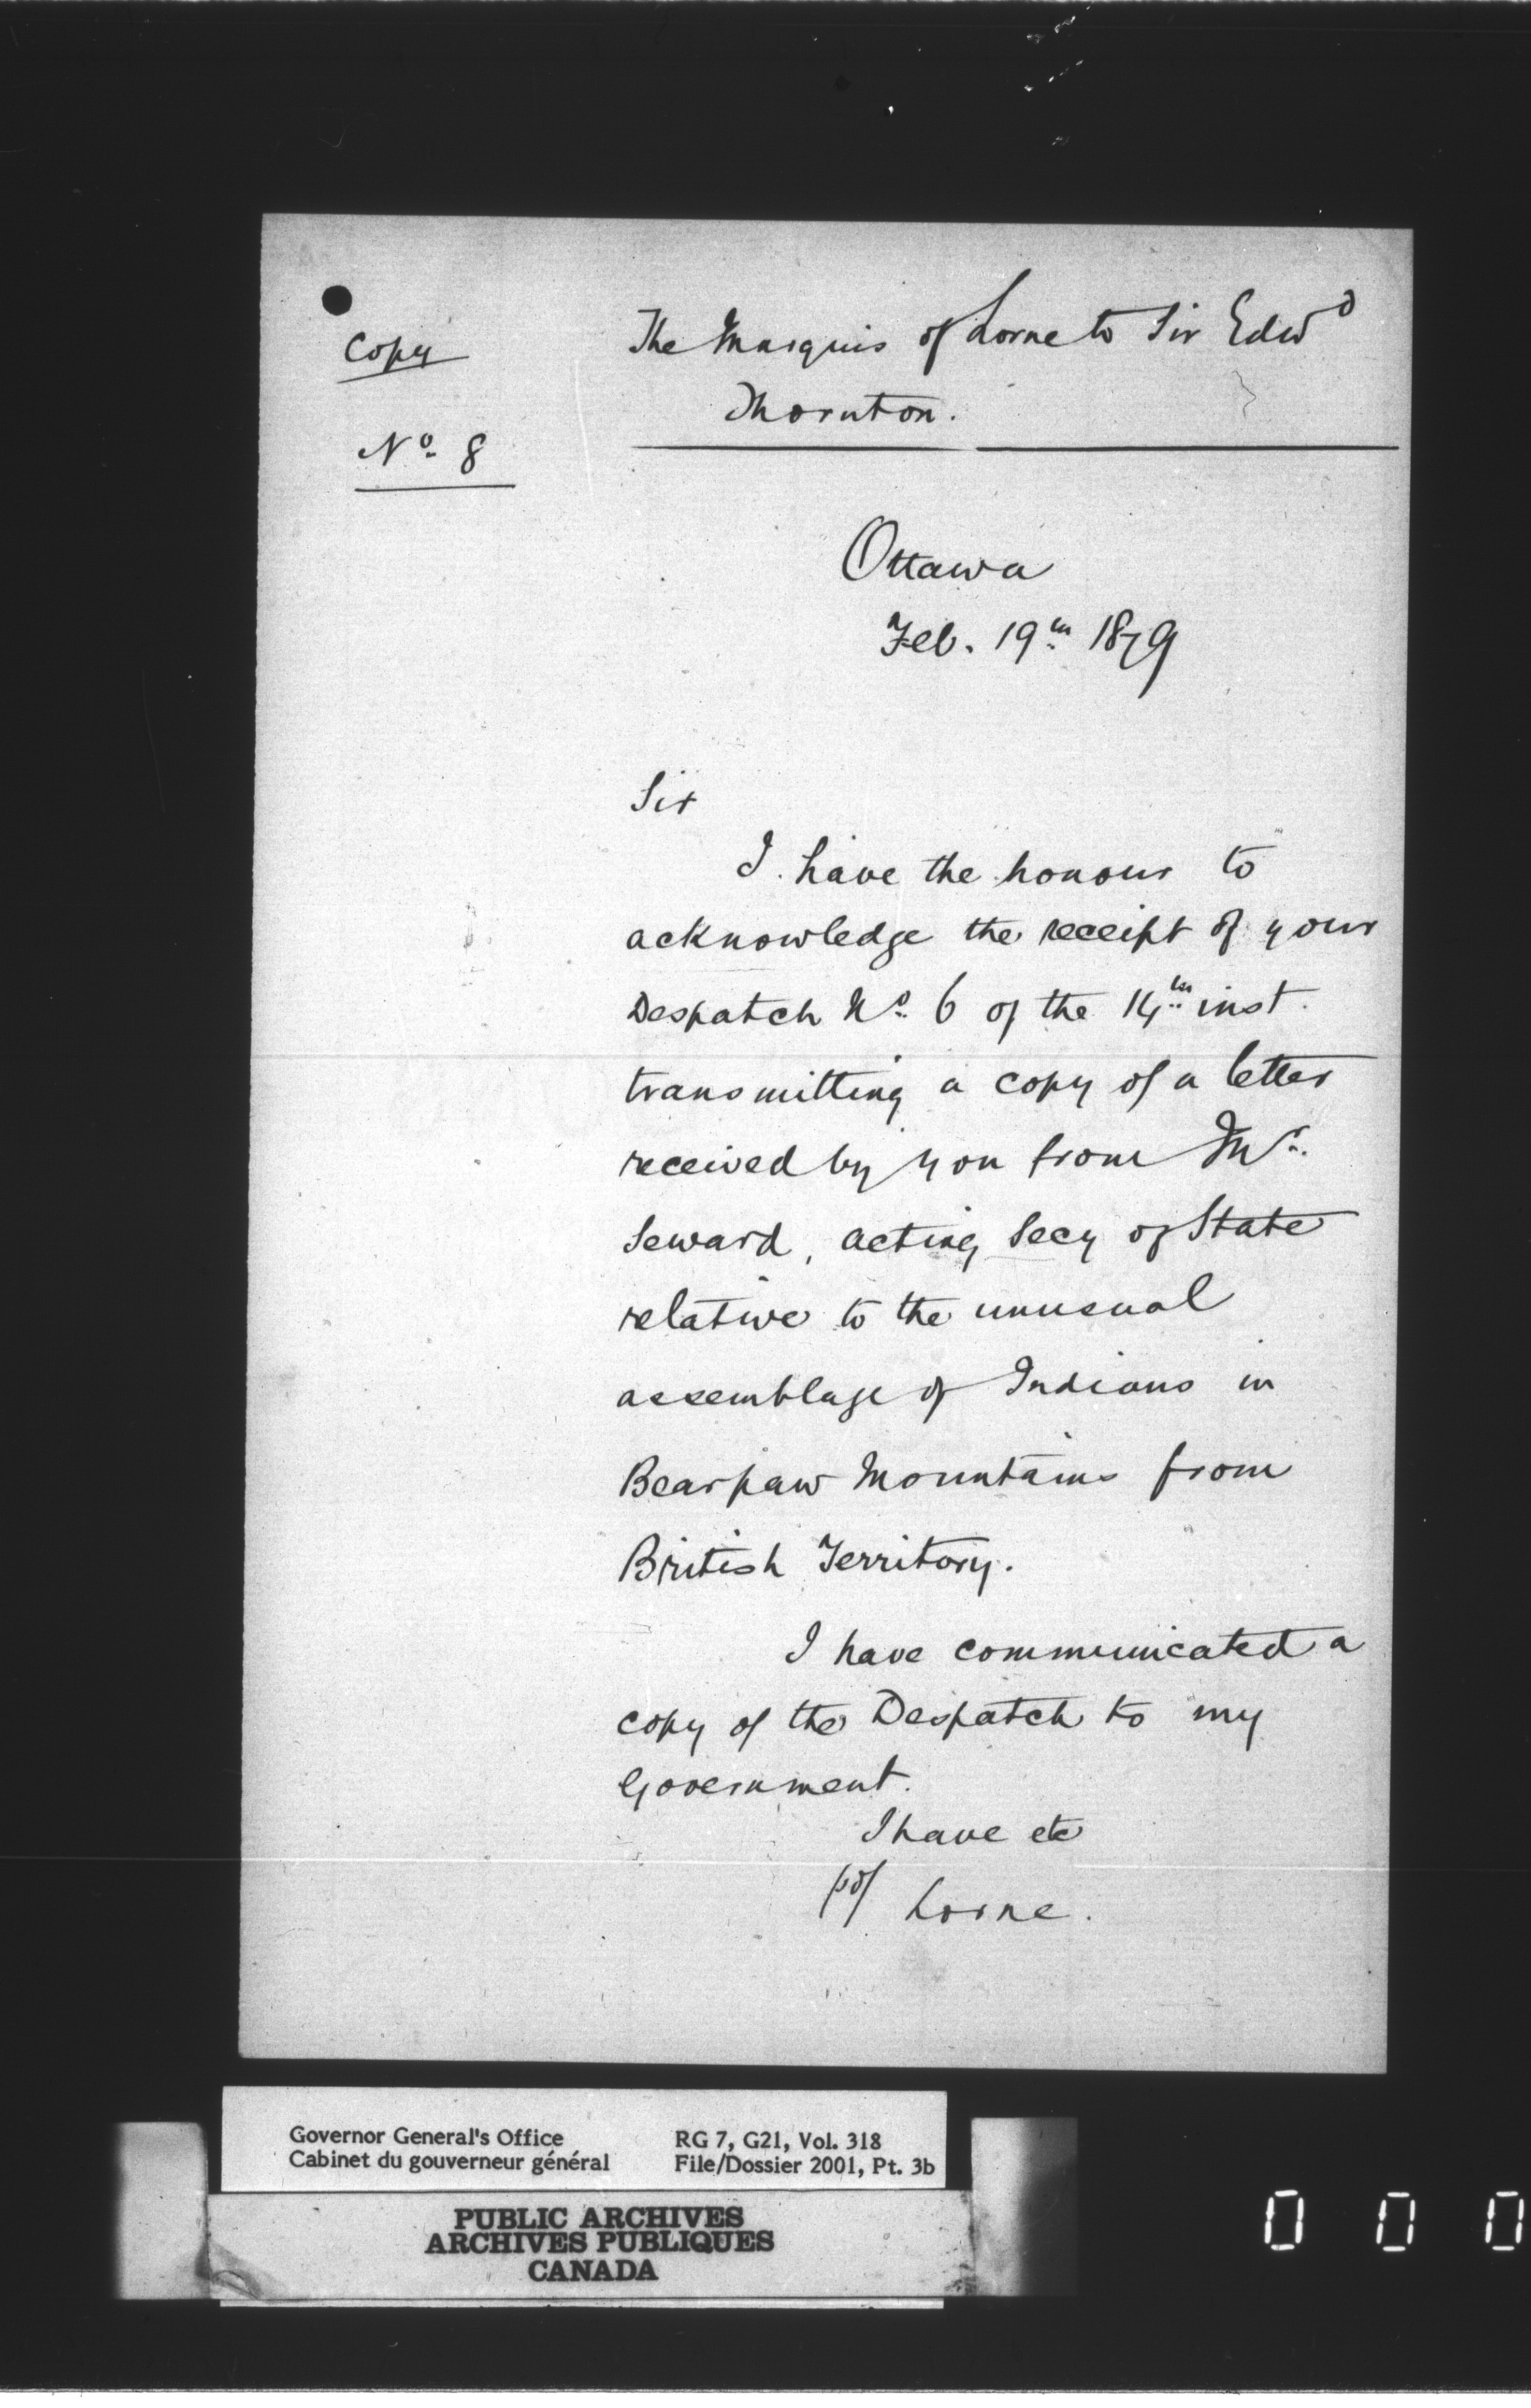 Copy
No. 8
The Marquis of Lorne to Sir Edwd
Thornton.
Ottawa
Feb. 19th 1879
Sir
I have the honour to
acknowledge the receipt of your
Despatch No. 6 of the 14th inst.
transmitting a copy of a letter
received by you from Mr.
Seward, acting Secy of State
relative to the unusual
assemblage of Indians in
Bearpaw Mountains from
British Territory.
I have communicated a
copy of the Despatch to my
Government.
I have etc
(sd) Lorne.
Governor General's Office
Cabinet du gouverneur général
RG 7, G21, Vol. 318
File/Dossier 2001, Pt. 3b
PUBLIC ARCHIVES
ARCHIVES PUBLIQUES
CANADA
0 0 0